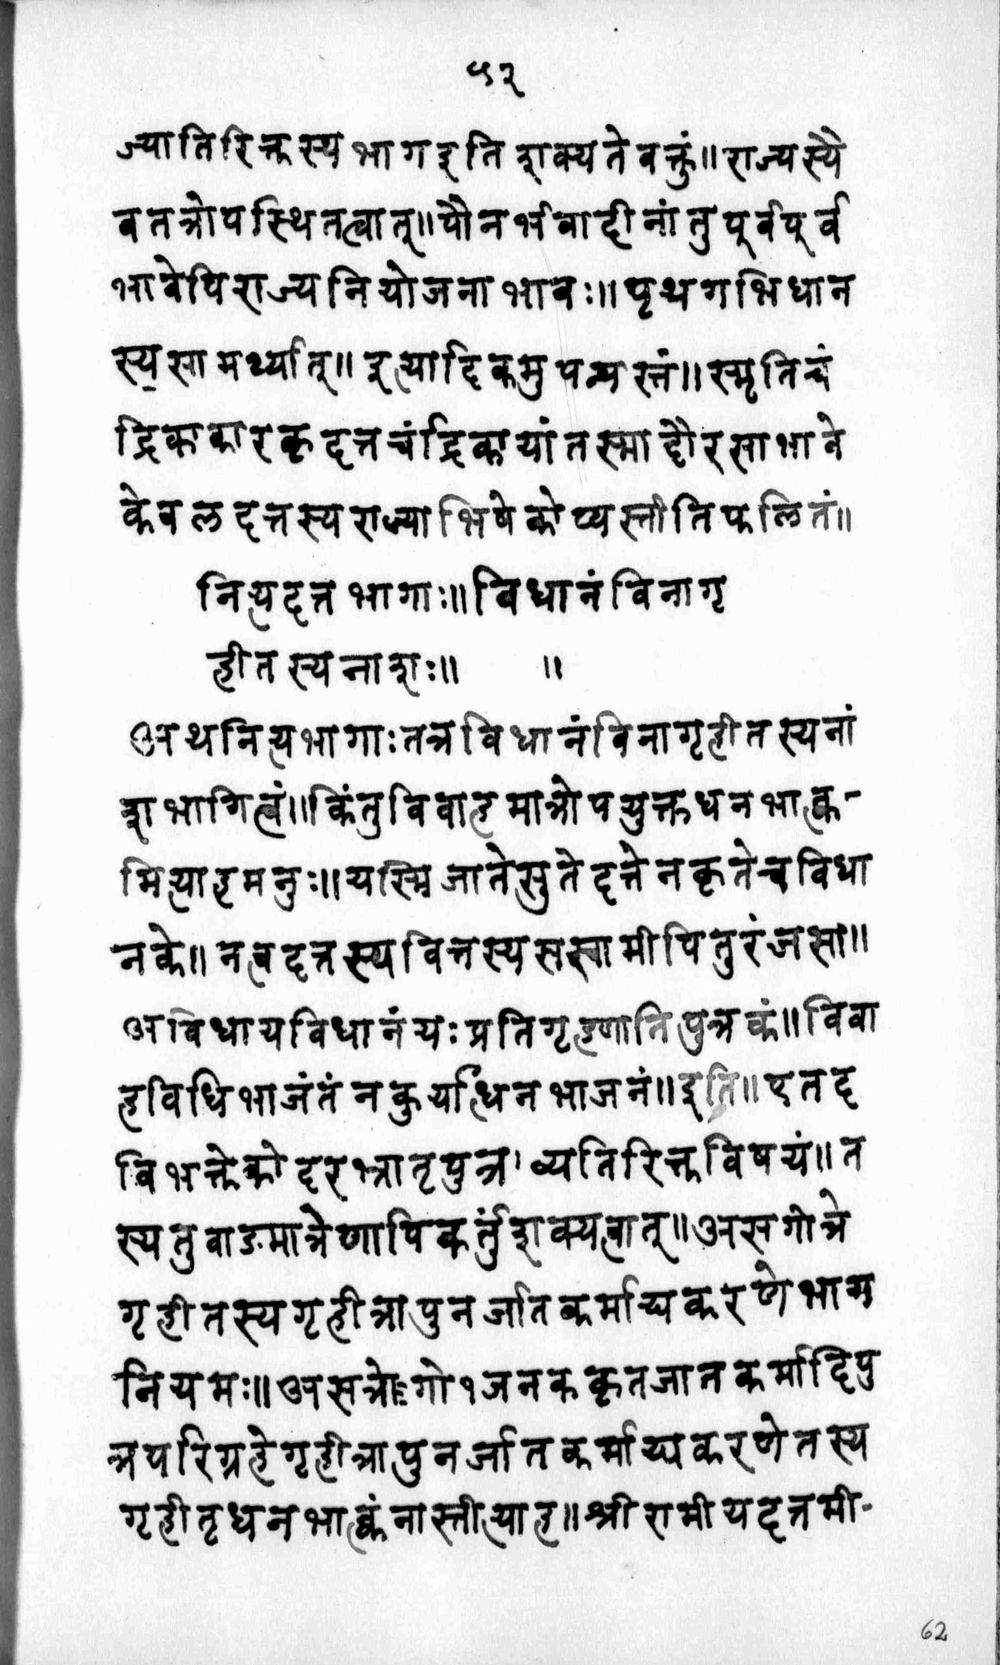 ५२
ज्यातिरिक्तस्य भाग इति शक्यते वक्तुं॥ राज्यस्यै
व तत्रोपस्थितत्वात्॥ पौनर्भवादीनां तु पूर्वपूर्व
भावेपि राज्यनियोजनाभावः॥ पृथगभिधान
स्य सामर्थ्यात्॥ इत्यादिकमुपन्यस्तं॥ स्मृतिचं
द्रिकाकारकृदत्तचंद्रिकायां तस्मादौरसाभावे
केवलदत्तस्य राज्याभिषेकोप्यस्तीति फलितं॥
नित्यदत्तभागाः॥ विधानं विना गृ
हीतस्य नाशः॥ ॥
अथ नित्यभागाः तत्र विधानं विना गृहीतस्य नां
शभागित्वं॥ किंतु विवाहमात्रोपयुक्तधनभाक्त्व-
मित्याह मनुः॥ यस्मि जाते सुते दत्ते न कृते च विधा
नके॥ नत्वदत्तस्य वित्तस्य सस्वामी पितुरंजसा॥
अविधाय विधानं यः प्रतिगृह्णाति पुत्रकं॥ विवा
हविधिभाजं तं न कुर्याद्धनभाजनं॥ इति॥ एतद
विभक्तेकोदरभ्रातृपुत्र' व्यतिरिक्तविषयं॥ त
स्य तु वाङमात्रेणापि कर्तुं शक्यत्वात्॥ असगोत्रे
गृहीतस्य गृहीत्रा पुनर्जातकर्माद्यकरणे भाग
नियमः॥ असत्रोःगो१ जनककृतजातकर्मादिपु
त्रपरिग्रहे गृहीत्रा पुनर्जातकर्माद्यकरणे तस्य
गृहीतृधनभाक्त्वं नास्तीत्याह॥ श्रीरामीयदत्तमी-
62